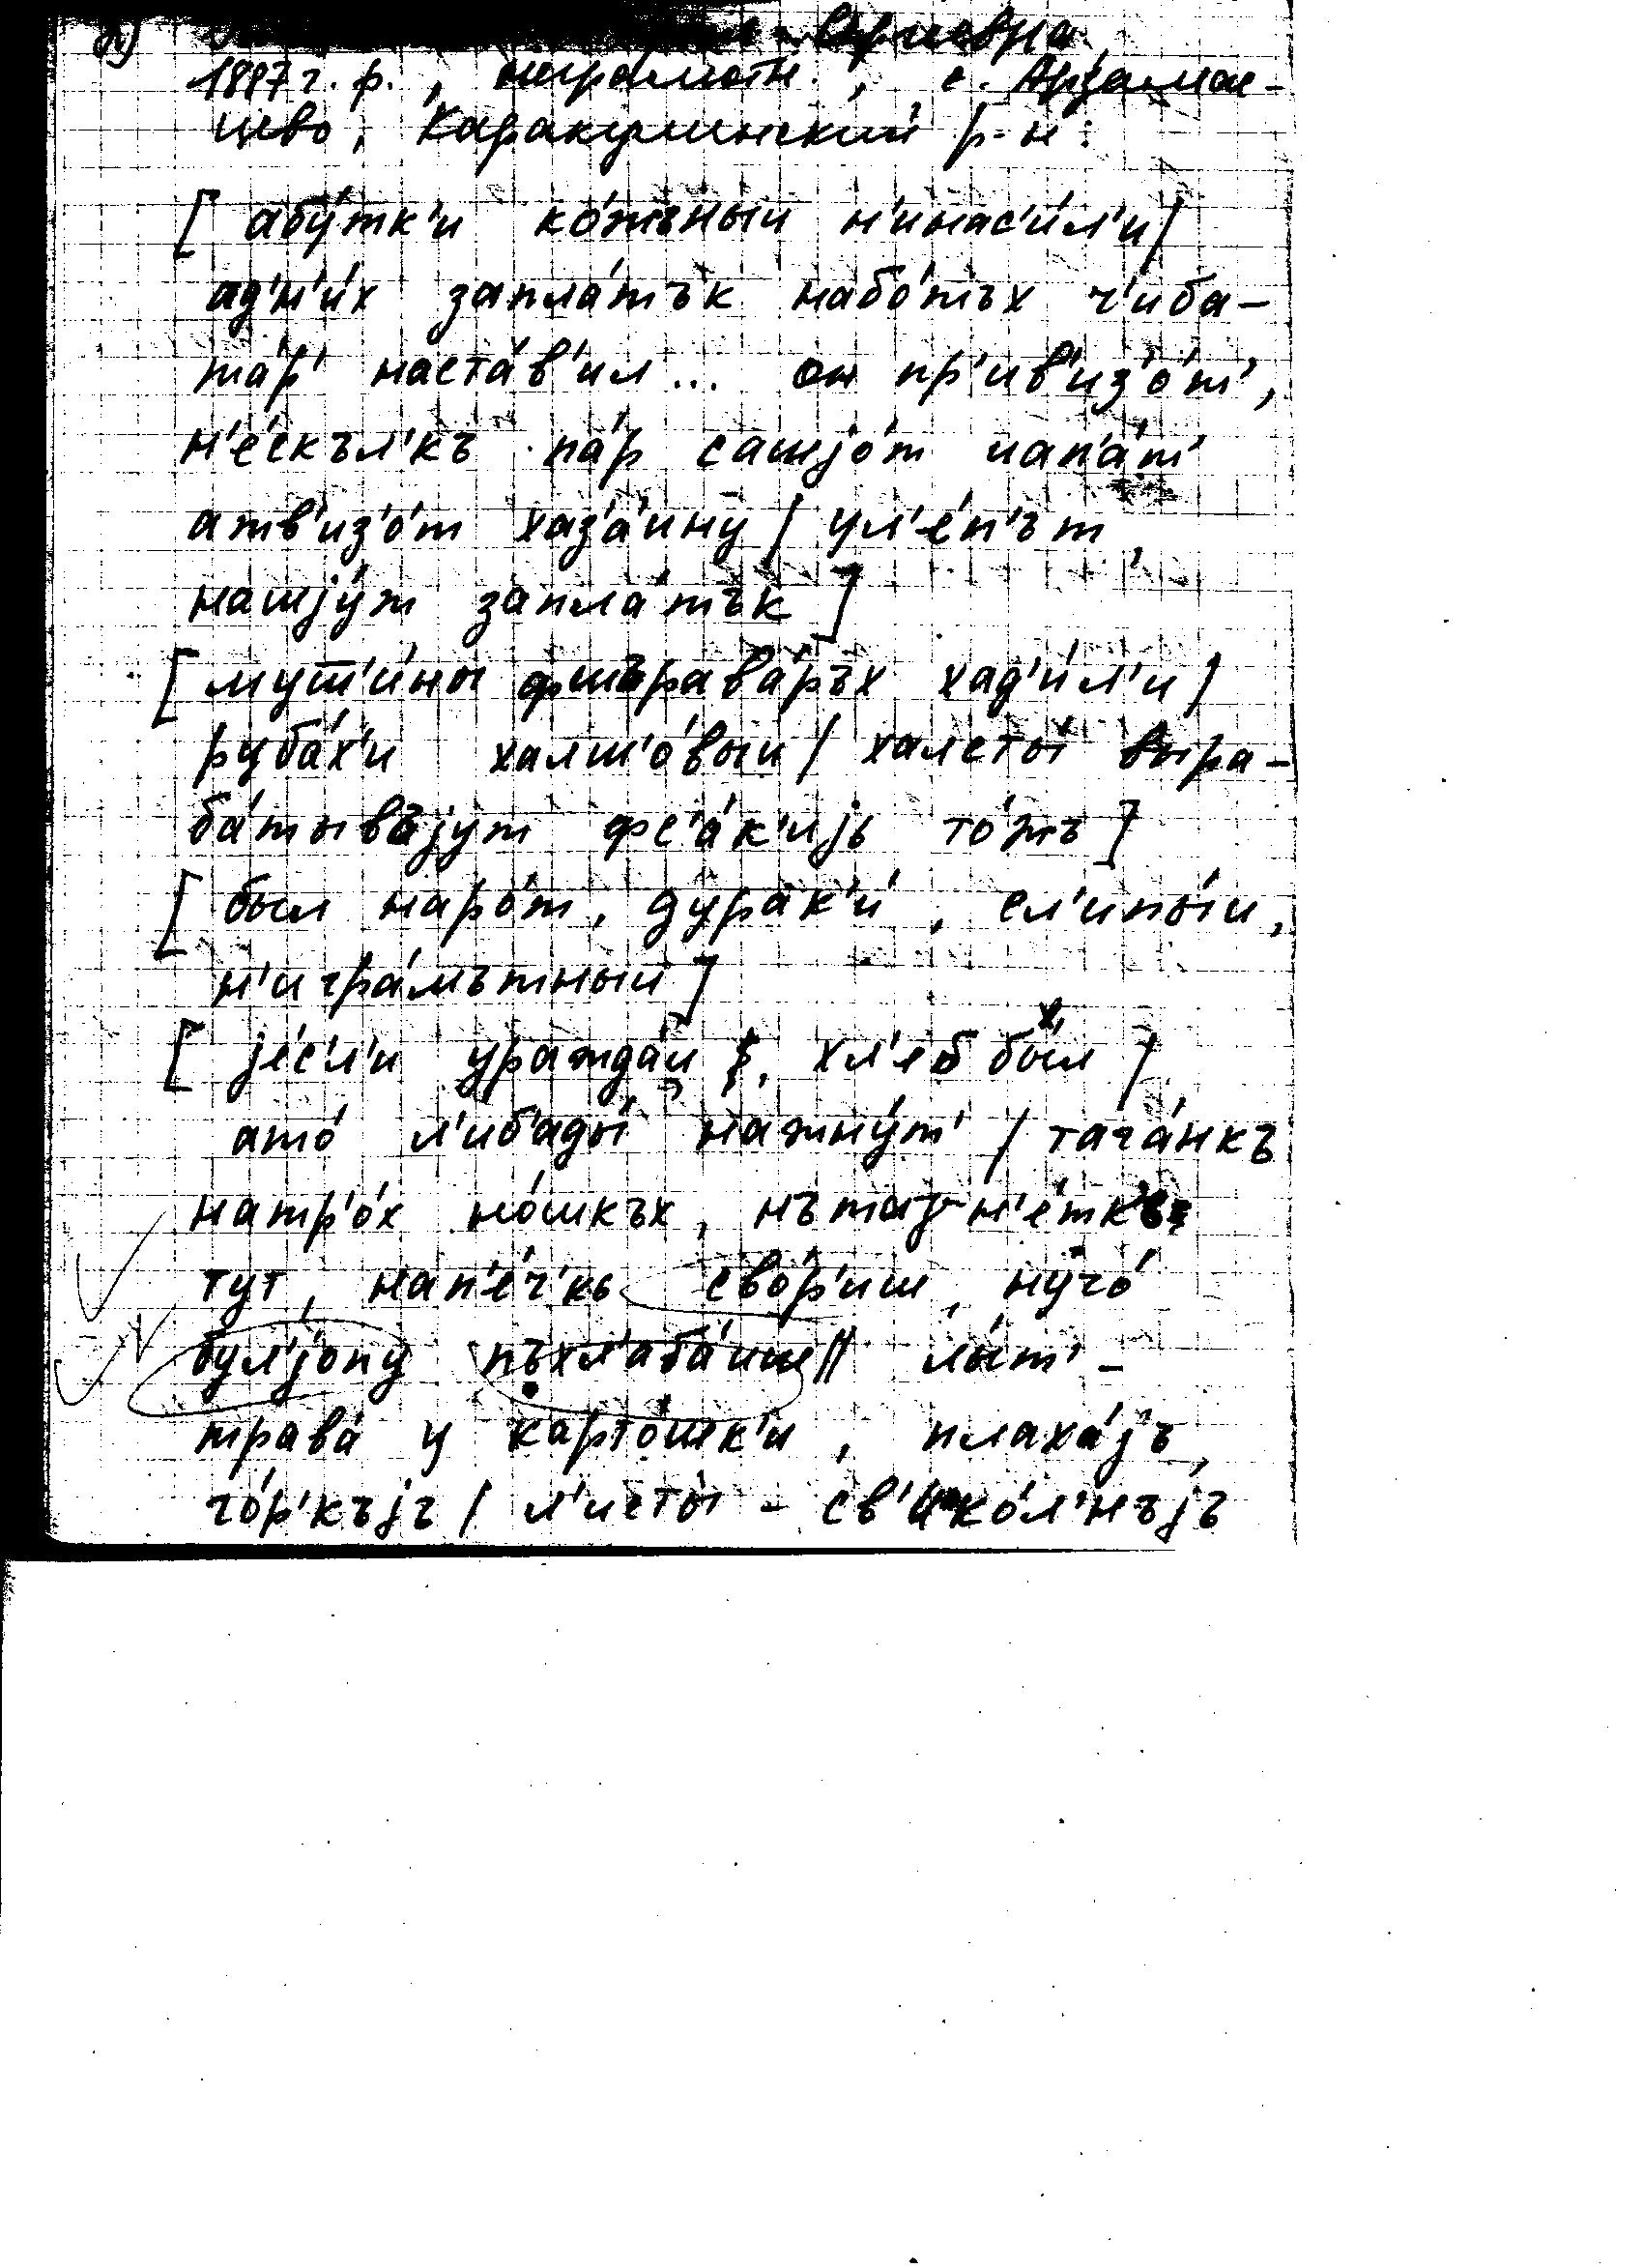 1897 г. р., неграмотн., с. Арзамас-
цево, Каракулинский р-н:
[ абу́тк'и ко́жъныи н'инас'и́л'и /
ад'н'и́х запла́тък набо́тъх ч'иба-
та́р' наста́в'ил... он пр'ив'из'о́т',
н'е́скъл'къ па́р сашjо́т иап'а́т'
атв'из'о́т хаз'а́ину / ул'е́п'ът
нашjу́т запла́тък ]
[ мущ'и́ны фшърава́ръх хад'и́л'и /
руба́х'и халш'о́выи / халсты́ выра-
ба́тывъjут фс'а́к'иjь то́жъ ]
[ был наро́т, дурак'и́, сл'ипы́и,
н'игра́мътныи ]
[ jе́с'л'и уражда́и, хл'еб бы́л /
ато́ л'иб'ады́ нажну́т' / тага́нкъ
натр'о́х но́шкъх,
тут, нап'е́ч'кь сво́р'иш, нучо́
бул'jону пъхл'аба́иш // ... –
трава́ у карто́шк'и, плаха́jъ,
го́р'къjъ / л'исты́ – св'ико́л'нъjъ